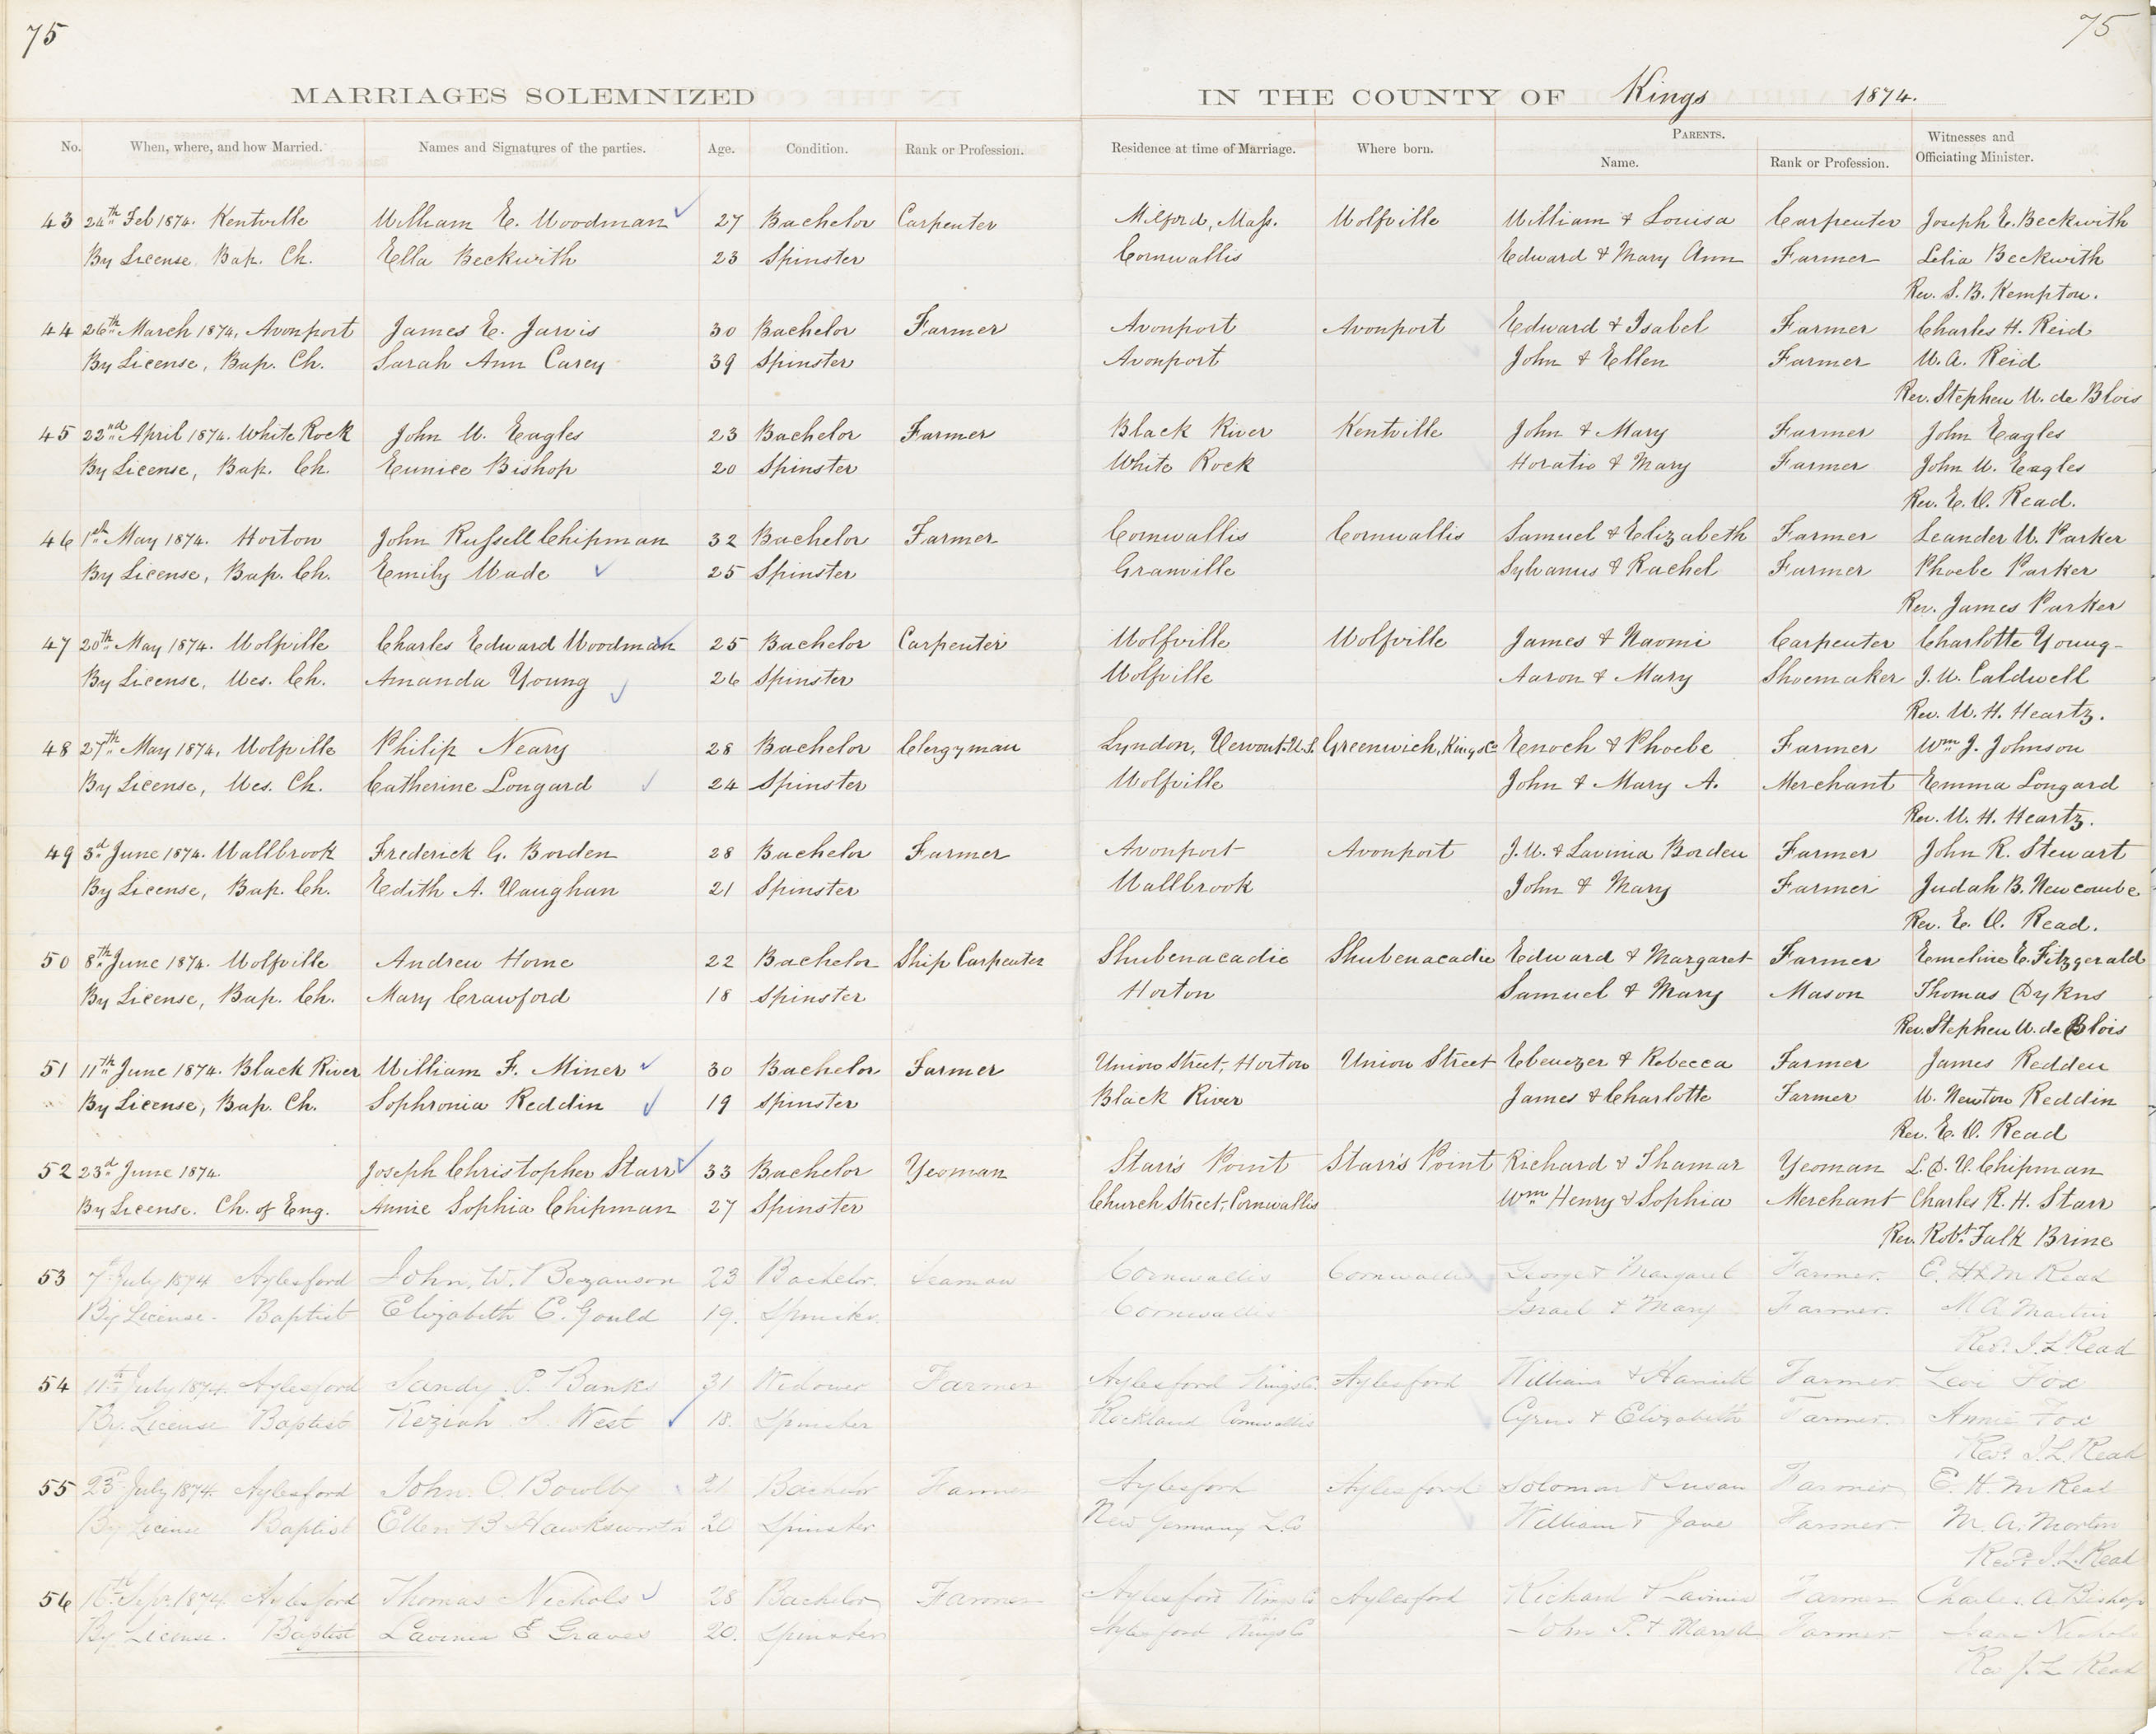 75 75
MARRIAGES SOLEMNIZED IN THE COUNTY OF Kings 1874.
No. When, where, and how Married. Names and Signatures of the parties. Age. Condition. Rank or Profession. Residence at time of Marriage. Where born. PARENTS. Name. Rank or Profession. Witnesses and Officiating Minister.
43 24th Feb 1874. Kentville William E. Woodman 27 Bachelor Carpenter Milford, Mass. Wolfville William & Louisa Carpenter Joseph E. Beckwith
By License Bap. Ch. Ella Beckwith 23 Spinster Cornwallis Edward & Mary Ann Farmer Lelia Beckwith
Rev. S. B. Kempton.
44 26th March 1874, Avonport James E. Jarvis 30 Bachelor Farmer Avonport Avonport Edward & Isabel Farmer Charles H. Reid
By License, Bap. Ch. Sarah Ann Carey 39 Spinster Avonport John & Ellen Farmer W. A. Reid
Rev. Stephen W. de Blois
45 22nd April 1874. White Rock John W. Eagles 23 Bachelor Farmer Black River Kentville John & Mary Farmer John Eagles
By License, Bap. Ch. Eunice Bishop 20 Spinster White Rock Horatio & Mary Farmer John W. Eagles
Rev. E. O. Read.
46 1st May 1874. Horton John Russell Chipman 32 Bachelor Farmer Cornwallis Cornwallis Samuel & Elizabeth Farmer Leander W. Parker
By License, Bap. Ch. Emily Wade 25 Spinster Granville Sylvanus & Rachel Farmer Phoebe Parker
Rev. James Parker
47 20th May 1874. Wolfville Charles Edward Woodman 25 Bachelor Carpenter Wolfville Wolfville James & Naomi Carpenter Charlotte Young
By License, Wes. Ch. Amanda Young 26 Spinster Wolfville Aaron & Mary Shoemaker J. W. Caldwell
Rev. W. H. Heartz.
48 27th May 1874, Wolfville Philip Neary 28 Bachelor Clergyman Lyndon, Vermont U.S. Greenwich, Kings Co Enoch & Phoebe Farmer Wm J. Johnson
By License, Wes. Ch. Catherine Longard 24 Spinster Wolfville John & Mary A. Merchant Emma Longard
Rev. W. H. Heartz.
49 3d June 1874. Wallbrook Frederick G. Borden 28 Bachelor Farmer Avonport Avonport J. W. & Lavinia Borden Farmer John R. Stewart
By License, Bap. Ch. Edith A. Vaughan 21 Spinster Wallbrook John & Mary Farmer Judah B. Newcombe
Rev. E. O. Read.
50 8th June 1874. Wolfville Andrew Horne 22 Bachelor Ship Carpenter Shubenacadie Shubenacadie Edward & Margaret Farmer Emeline E. Fitzgerald
By License, Bap. Ch. Mary Crawford 18 Spinster Horton Samuel & Mary Mason Thomas Dykns
Rev. Stephen W. de Blois
51 11th June 1874. Black River William F. Miner 30 Bachelor Farmer Union Street, Horton Union Street Ebenezer & Rebecca Farmer James Redden
By License, Bap. Ch. Sophronia Reddin 19 Spinster Black River James & Charlotte Farmer W. Newton Reddin
Rev. E. O. Read
52 23d June 1874. Joseph Christopher Starr 33 Bachelor Yeoman Starr's Point Starr's Point Richard & Thamar Yeoman L. D. V. Chipman
By License. Ch. of Eng. Annie Sophia Chipman 27 Spinster Church Street, Cornwallis Wm Henry & Sophia Merchant Charles R. H. Starr
Rev. Robt. Falk Brine
53 7 July 1874 Aylesford John. W. Bezanson 23 Bachelor. Seaman Cornwallis Cornwallis George & Margaret Farmer. E. H. M Read
By License. Baptist Elizabeth E. Gould 19. Spinster Cornwallis Israel & Mary Farmer. M A Martin
Rev. J. L Read
54 11th July 1874. Aylesford Sandy P. Banks 31 Widower Farmer Aylesford Kings Co. Aylesford William & Harriett Farmer Levi Fox
By License Baptist Keziah S. West 18. Spinster Rockland Cornwallis Cyrus & Elizabeth Farmer. Annie Fox
Revd J. L. Read
55 23d July 1874. Aylesford John. O. Bowlby 21 Bachelor Farmer Aylesford Aylesford Solomon & Susan Farmer E. H. M Read
By License Baptist Ellen B Hawksworth 20 Spinster New Germany L. Co William & Jane Farmer. M. A. Morton
Revd. J. L. Read
56 16th Sep. 1874 Aylesford Thomas Nichols 28 Bachelor Farmer Aylesford Kings Co Aylesford Richard & Lavinia Farmer Charles A. Bishop
By License. Baptist Lavinia E Graves 20. Spinster Aylesford Kings Co John P. & Maria Farmer
Rev J. L Read